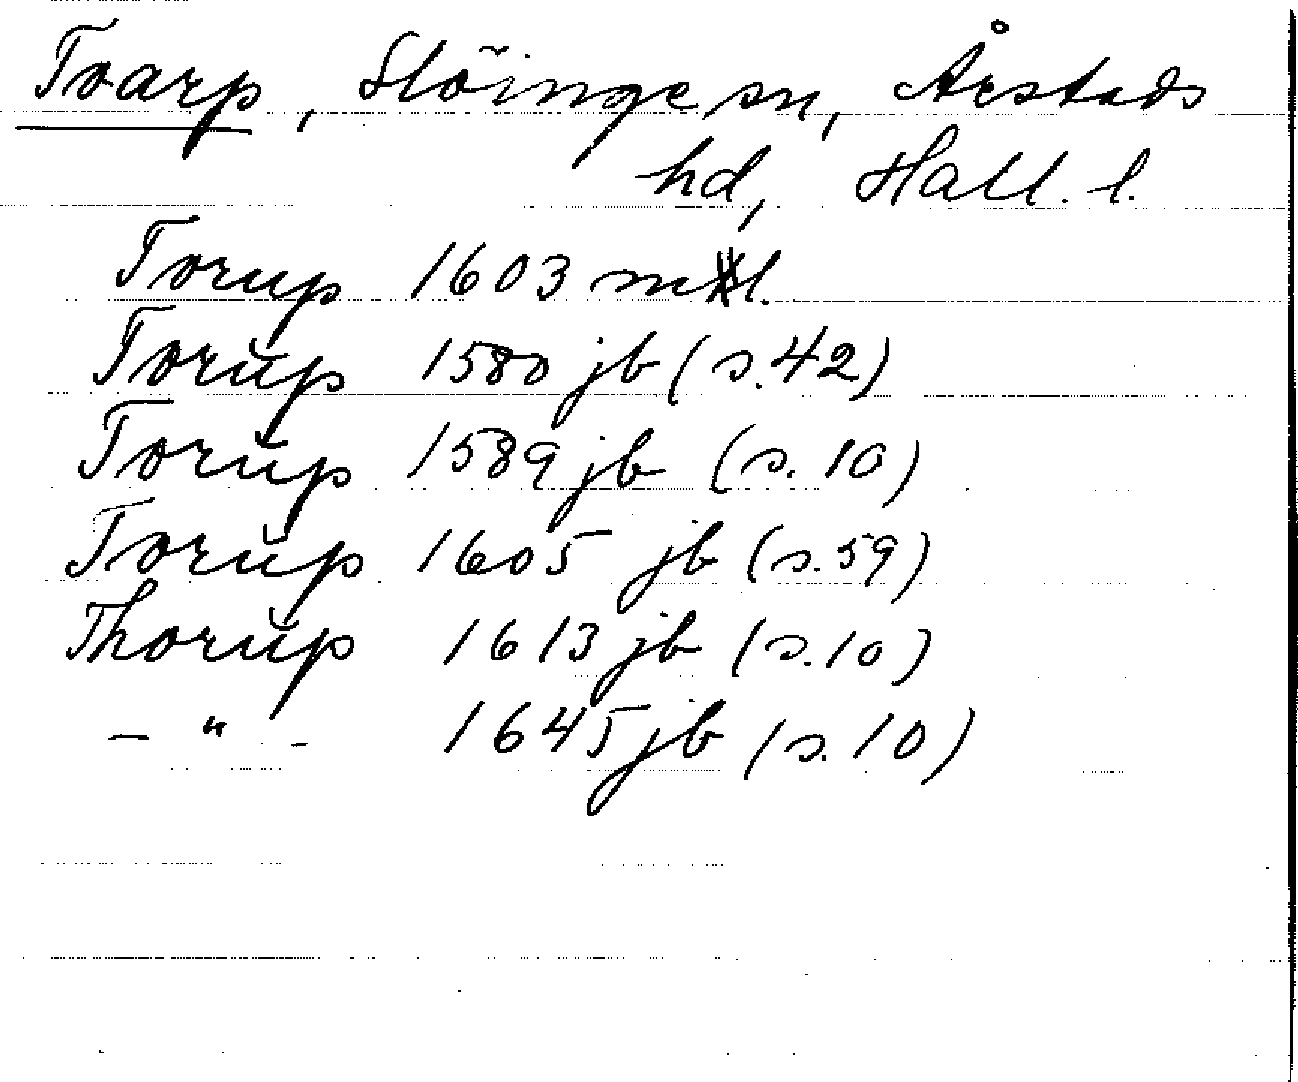 Toarp, Slöinge sn, Årstads
hd, Hall. l.
Torup 1603 mtl.
Torŭp 1580 jb (s. 42)
Torŭp 1589 jb (s. 10)
Torŭp 1605 jb (s. 59)
Thorŭp 1613 jb (s. 10)
– " – 1645 jb (s. 10)